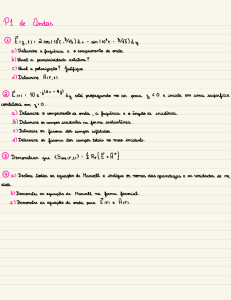 P1 de Ondas
① E(z,t) = 2cos(10⁸t - z/√3) âx - sen(10⁸t - z/√3) ây
a) Determine a frequência e o comprimento de onda.
b) Qual a permissividade relativa?
c) Qual a polarização? Justifique.
d) Determine H(z,t)
② está propagando no ar para y ≤ 0 e incide em uma superfície
condutora em y = 0.
a) Determine o comprimento de onda, a frequência e o ângulo de incidência.
b) Determine os campos incidentes na forma instantânea.
c) Determine os fasores dos campos refletidos.
d) Determine os fasores dos campos totais no meio incidente.
③ Demonstrar que ⟨S(r,t)⟩ = ½ Re[E × H*]
④ a) Decline todas as equações de Maxwell e indique os nomes das grandezas e as unidades de me
dida.
b) Demonstre as equações de Maxwell na forma fasorial.
c) Demonstre as equações de onda para E(r) e H(r).